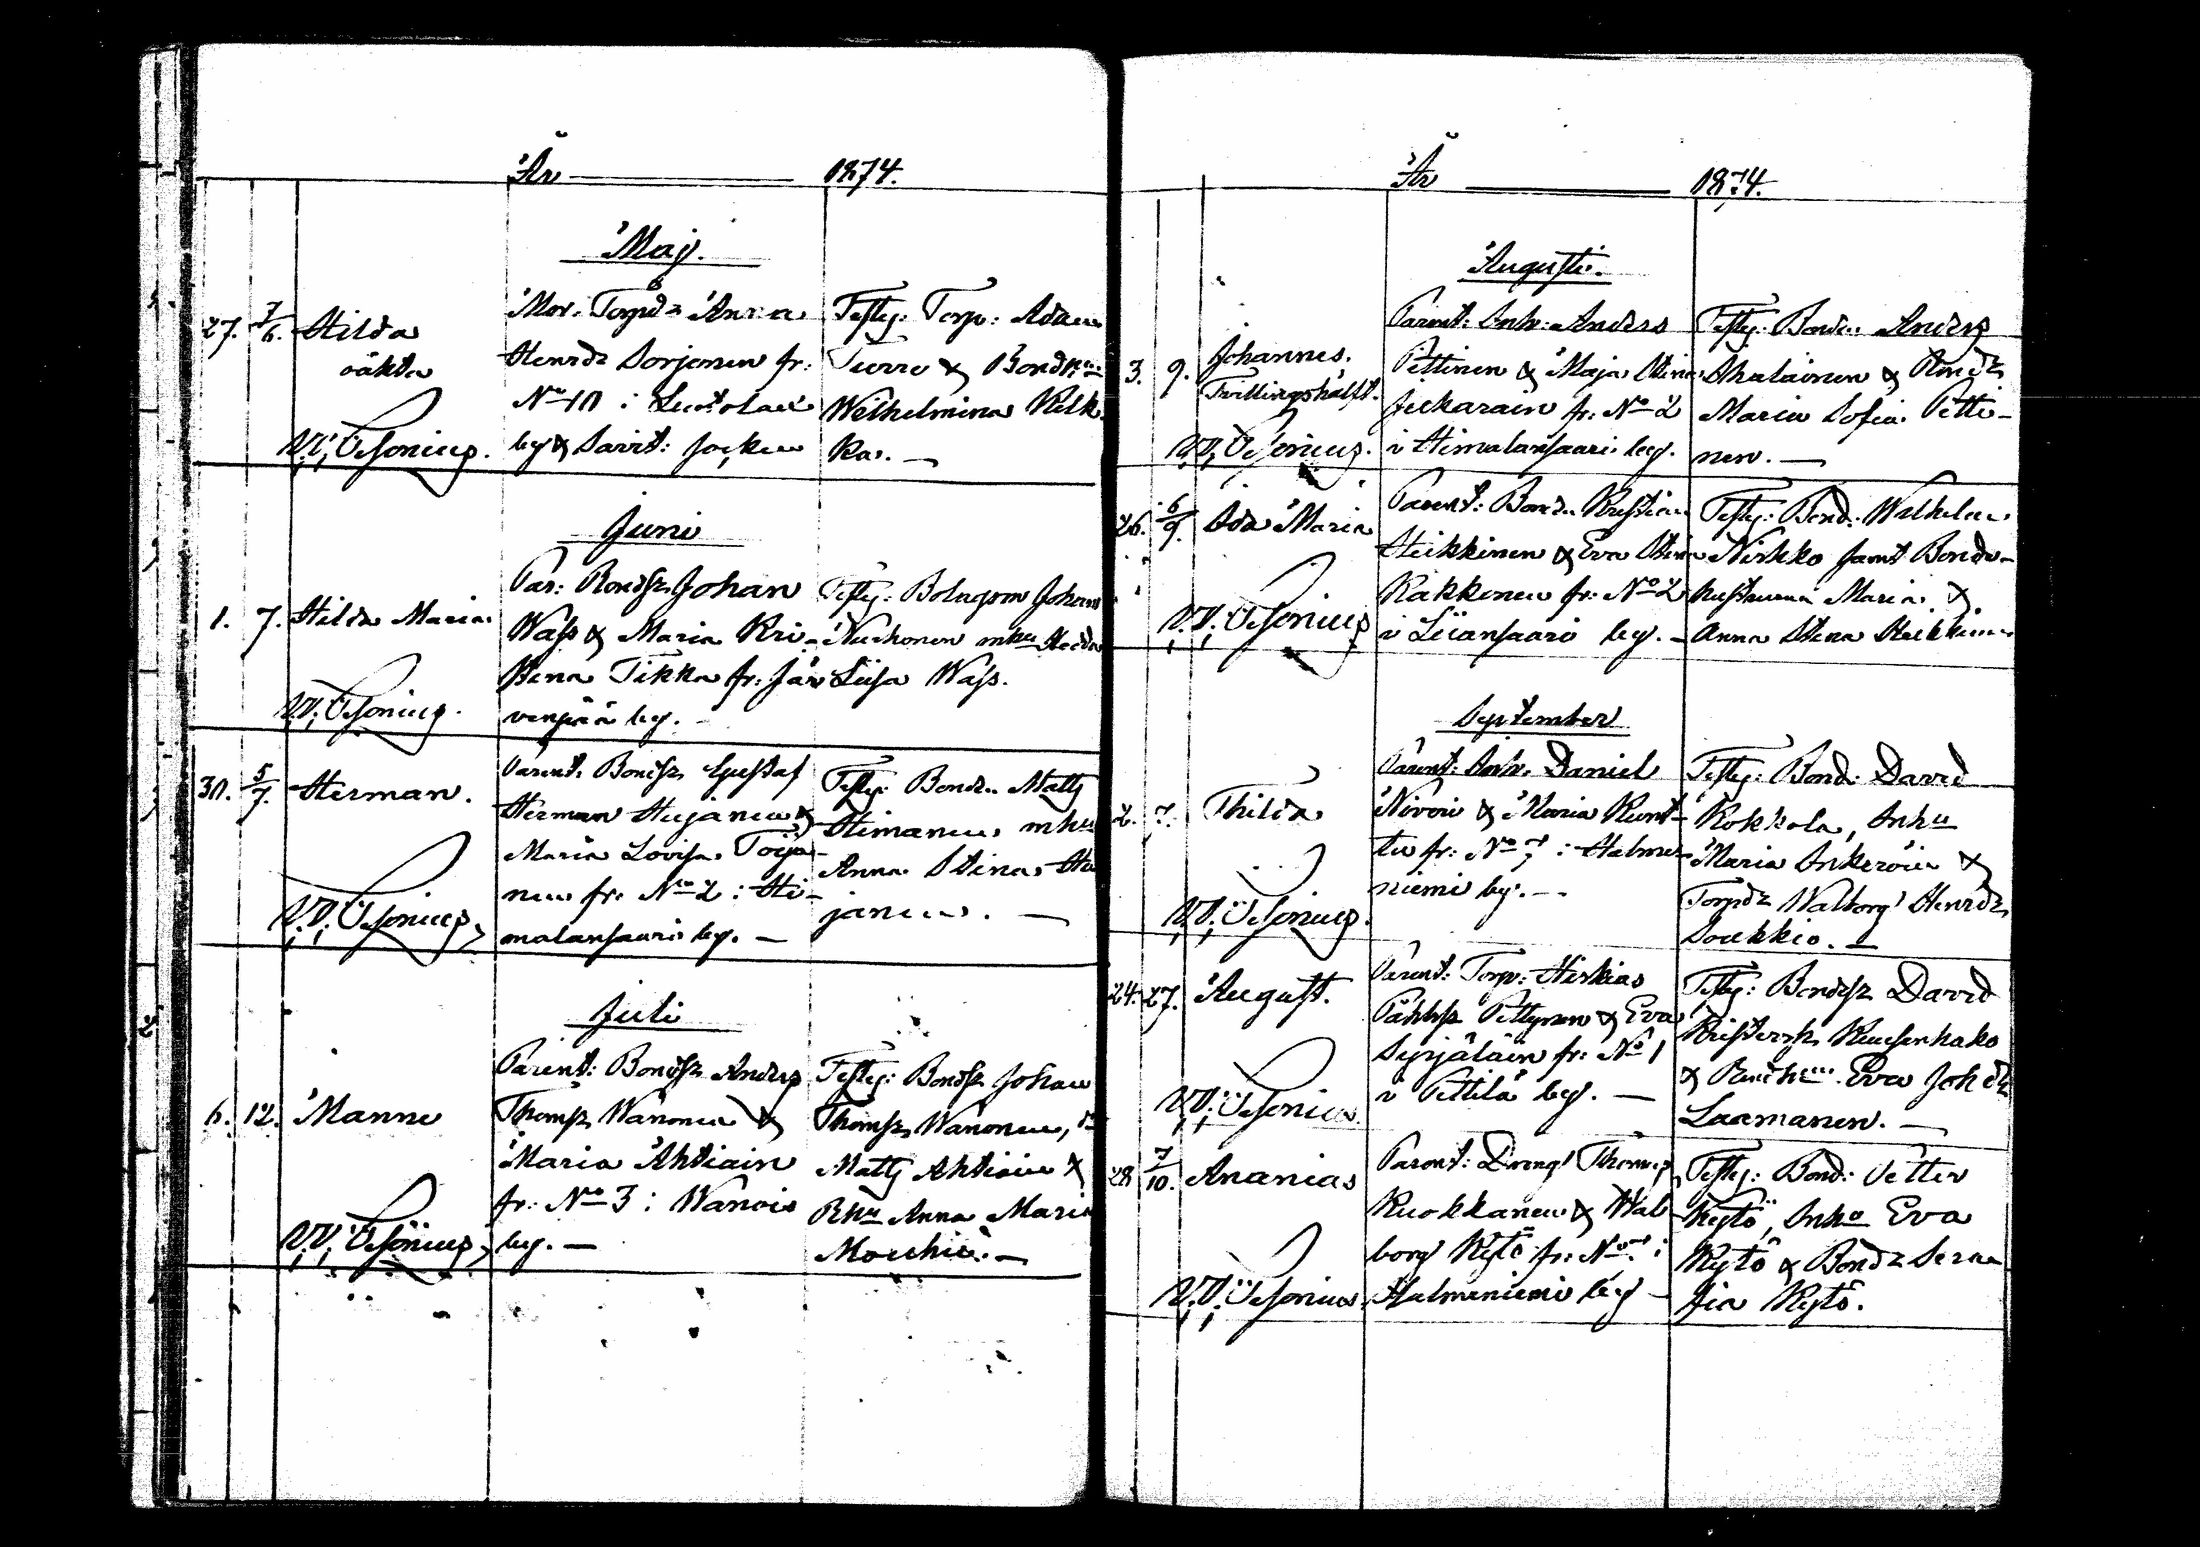 År 1874.
Maj.
27. 7/6. Hilda
oäkta
V.V. Cesonius.
Mor. Torpdr Anna
Henrdr Sorjonen fr:
No 10 i
by & Savit:
Testes: Torp: Adam
Tuorre & Bond
Wilhelmina Kilk
ka. —
Juni
1. 7. Hilda Maria
V.V. Cesonius.
Par: Bondss Johan
Wass & Maria Kri-
stena Tikka fr: Jär
venpää by.
Testes: Bolagsm Johan
Nuckonen mhu Hedda
Liisa Wass.
30. 5/7. Herman.
V.V. Cesonius,
Parent. Bondss Gustaf
Herman Hujanen &
Maria Lovisa Torja-
nen fr. No 2 i Hi-
malansaari by. —
Testes: Bonden Matts
Himanen mhu
Anna Stina Hu
janen. —
Juli
6. 12. Manne
V.V. Cesonius,
Parent: Bondss Anders
Thomss Wanonen &
Maria Ahtiain
fr. No 3 i Wanois
by. —
Testes: Bondss Johan
Thomss Wanonen,
Matts Ahtiain &
Anna Maria
Mouhi. —
År 1874.
Augusti.
3. 9. Johannes.
Tvillingshälft.
V.V. Cesonius.
Parent: Inh: Anders
Pettinen & Maja Stina
Jickarain fr: No 2
i Himalansaari by.
Testes: Bonden Anders
Ahalainen & Bondr
Maria Sofia Petti-
nen. —
26. 6/9. Ida Maria
V.V. Cesonius
Parent: Bonden Kristian
Heikkinen & Eva Stina
Kakkonen fr: No 2
i Liiansaari by. —
Testes: Bond: Wilhelm
Nirkko samt Bonde-
hustrurna Maria &
Anna Stena Heikkinen
September
2. 7. Thilda
V.V. Cesonius.
Parent: Inh. Daniel
Nivoi & Maria Kunt-
tu fr: No 7 i Halme-
niemi by. —
Testes: Bond: David
Kokkola, Inhu
Maria Inkeröin &
Torpdr Walborg Henrdr
Soukkio. —
24. 27. August.
V.V. Cesonius.
Parent: Torp: Hiskias
Påhlss Pettynen & Eva
Syrjäläin fr: No 1
i Pettilä by. —
Testes: Bondess David
Kristerss Kuusenhako
& Eva Johdr
Laamanen. —
28. 7/10. Ananias
V.V. Cesonius.
Parent: Dreng Thomas
Kuokkanen & Wal
borg Kytö fr. No 7 i
Halmeniemi by —
Testes: Bond: Petter
Kytö, Inha Eva
Kytö & Bondr Sera
fia Kytö.